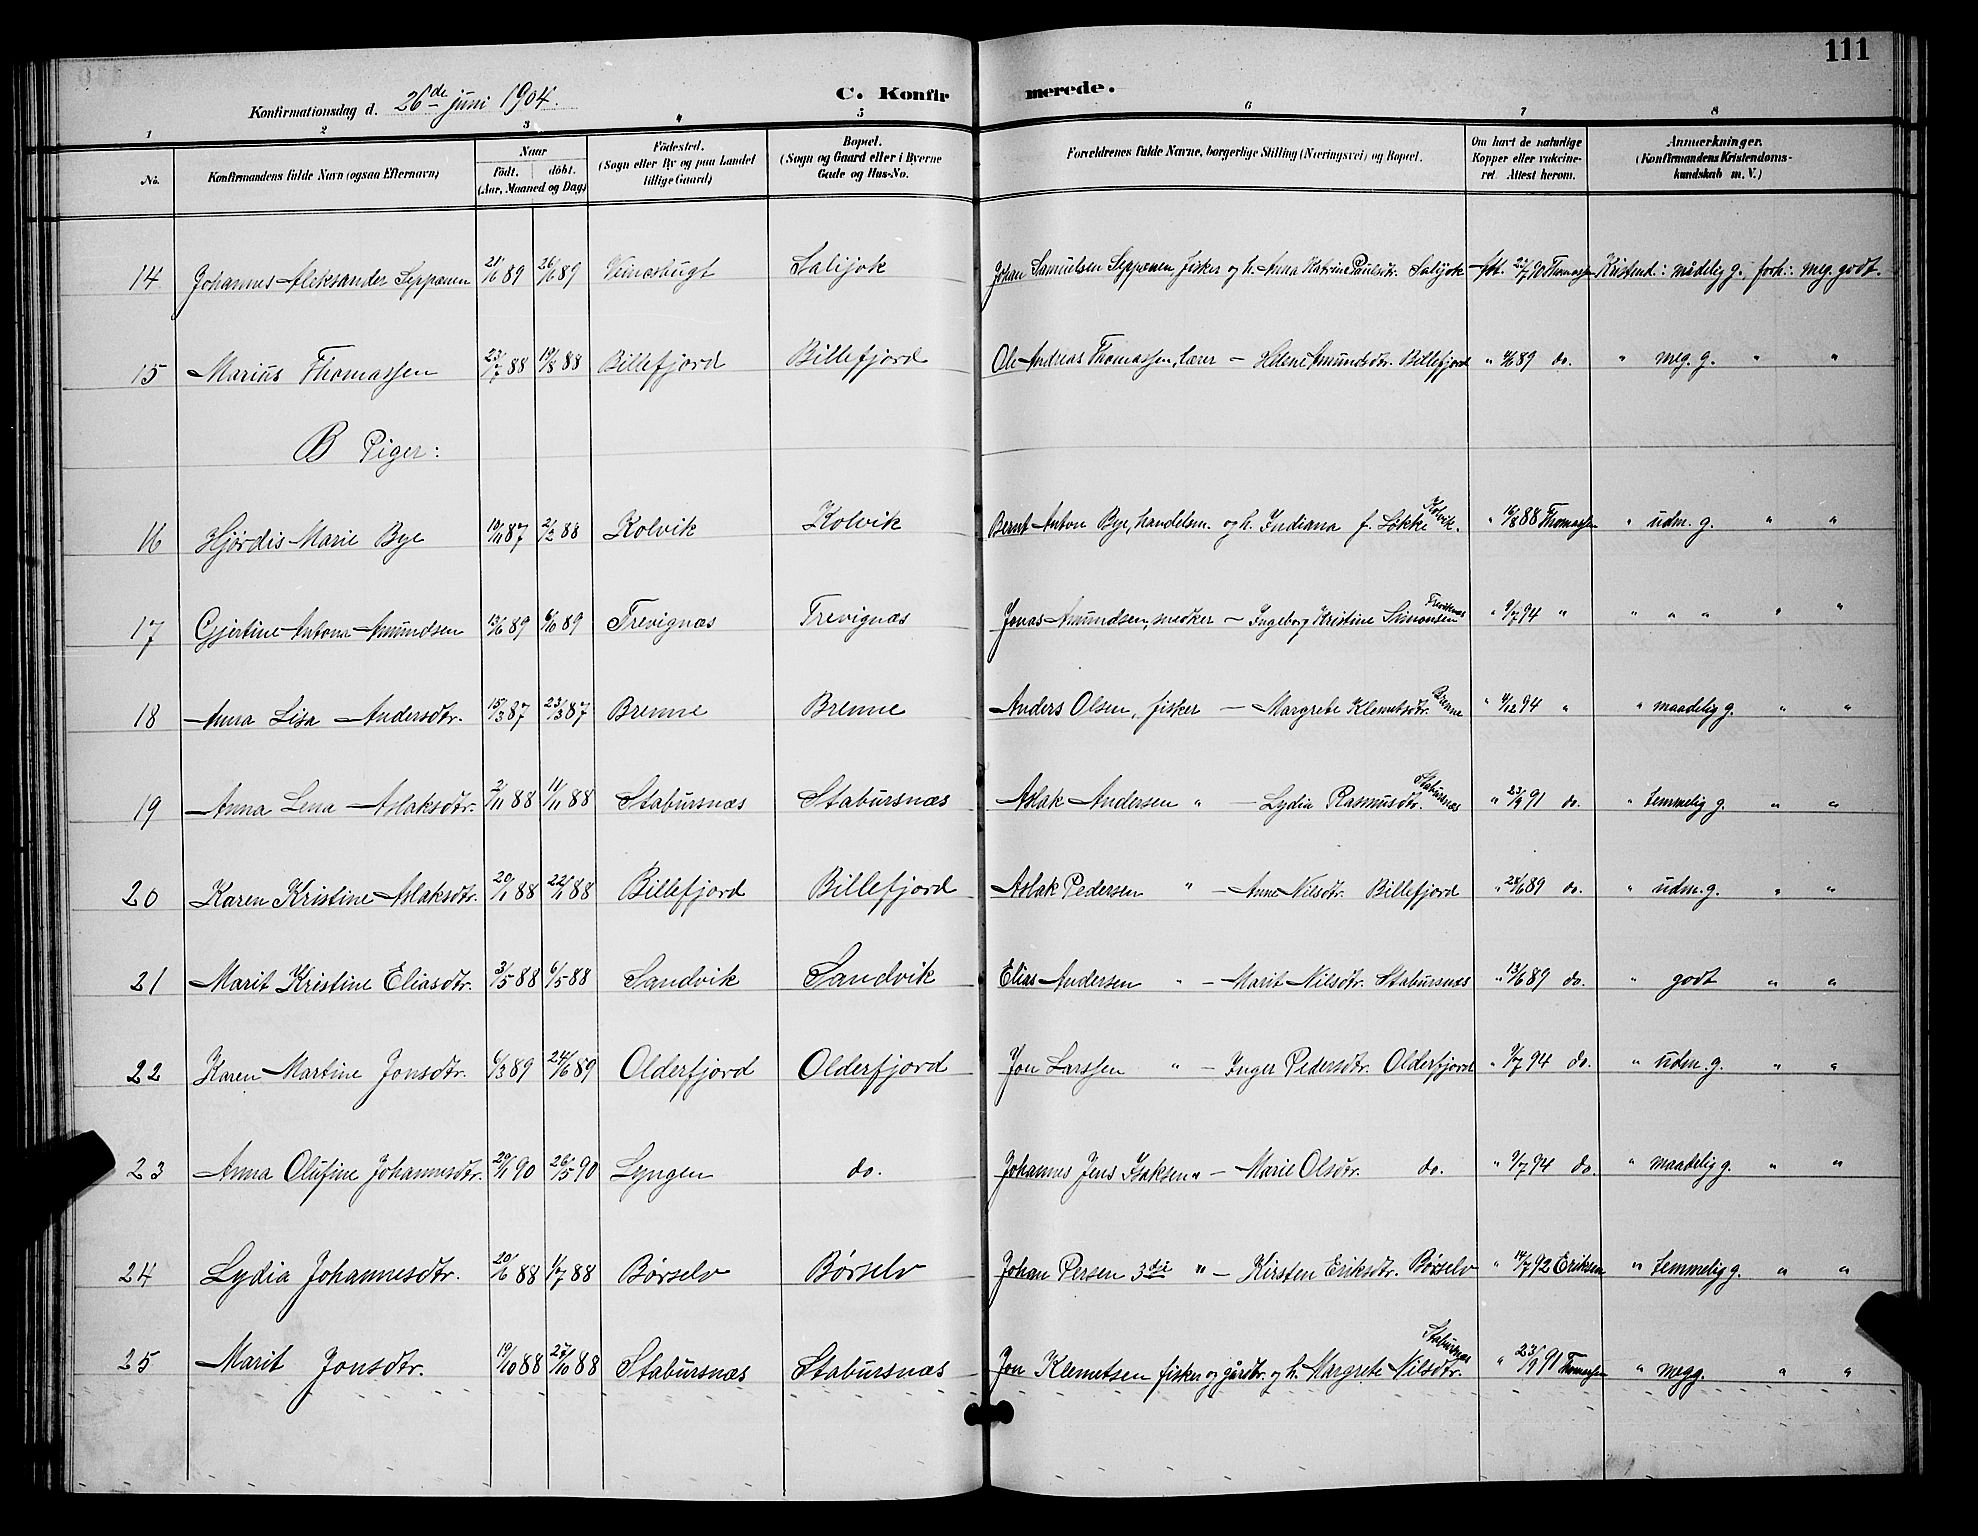 111
Konfirmationsdag d. 26de juni 1904.
C. Konfirmerede.
1 2 3 4 5 6 7 8
No. Konfirmandens fulde Navn (ogsaa Efternavn) Naar Født. døbt. (Aar, Maaned og Dag) Fødested. (Sogn eller By og paa Landet tillige Gaard) Bopæl. (Sogn og Gaard eller i Byerne Gade og Hus-No. Forældrenes fulde Navne, borgerlige Stilling (Næringsvei) og Bopæl. Om havt de naturlige Kopper eller vakcineret. Attest herom. Anmærkninger. (Konfirmandens Kristendomskundskab m. V.)
14 Johannes Aleksander Seppænen 21/6 89 26/6 89 Veinesbugt Salijok Johan Samuelsen Seppænen, fisker og h. Anna Katrine Paulsdtr. Salijok Att. 90 Thomassen Kristend.: mådelig g. forh.: meg. godt.
15 Marius Thomassen 23/7 88 19/8 88 Billefjord Billefjord Ole Andreas Thomassen, lærer — Helene Amundsdtr. Billefjord " 89 do. " meg. g. " "
B Piger:
16 Hjördis Marie Bye 19/11 87 2/2 88 Kolvik Kolvik Bernt Anton Bye, handelsm. og h. Indiana f. Løkke Kolvik. " 16/8 88 Thomassen " udm. g. " "
17 Gjertine Antona Amundsen 13/6 89 6/10 89 Trevignæs Trevignæs Jonas Amundsen, snedker — Ingeborg Kristine Simonsen Treviknæs " 9/7 94 " " " " " "
18 Anna Lisa Andersdtr. 15/3 87 23/3 87 Brenne Brenne Anders Olsen, fisker — Margrete Klemetsdtr. Brenne " 4/12 94 " " maadelig g. " "
19 Anna Lena Aslaksdtr. 2/11 88 11/11 88 Stabursnæs Stabursnæs Aslak Andersen " — Lydia Rasmusdtr. Stabursnæs " 23/9 91 do. " temmelig g. " "
20 Karen Kristine Aslaksdtr. 20/1 88 22/1 88 Billefjord Billefjord Aslak Pedersen " — Anne Nilsdtr. Billefjord " 28/6 89 do. " udm. g. " "
21 Marit Kristine Eliasdtr. 3/5 88 6/5 88 Sandvik Sandvik Elias Andersen " — Marit Nilsdtr. Stabursnæs " 13/6 89 do. " godt " "
22 Karen Martine Jonsdtr. 6/3 89 24/6 89 Olderfjord Olderfjord Jon Larssen " — Inger Pedersdtr. Olderfjord " 9/7 94 do. " udm. g. " "
23 Anna Olufine Johannesdtr. 29/1 90 26/5 90 Lyngen do. Johannes Jens Isaksen " — Marie Olsdtr. do. " 9/7 94 do. " maadelig g. " "
24 Lydia Johannesdtr. 20/6 88 1/7 88 Børselv Børselv Johan Persen 3die " — Kirsten Eriksdtr. Børselv " 14/7 92 Eriksen " temmelig g. " "
25 Marit Jonsdtr. 19/10 88 27/10 88 Stabursnæs Stabursnæs Jon Klemetsen fisker og gårdbr. og h. Margrete Nilsdtr. Stabursnæs " 23/9 91 Thomassen " megg. " "